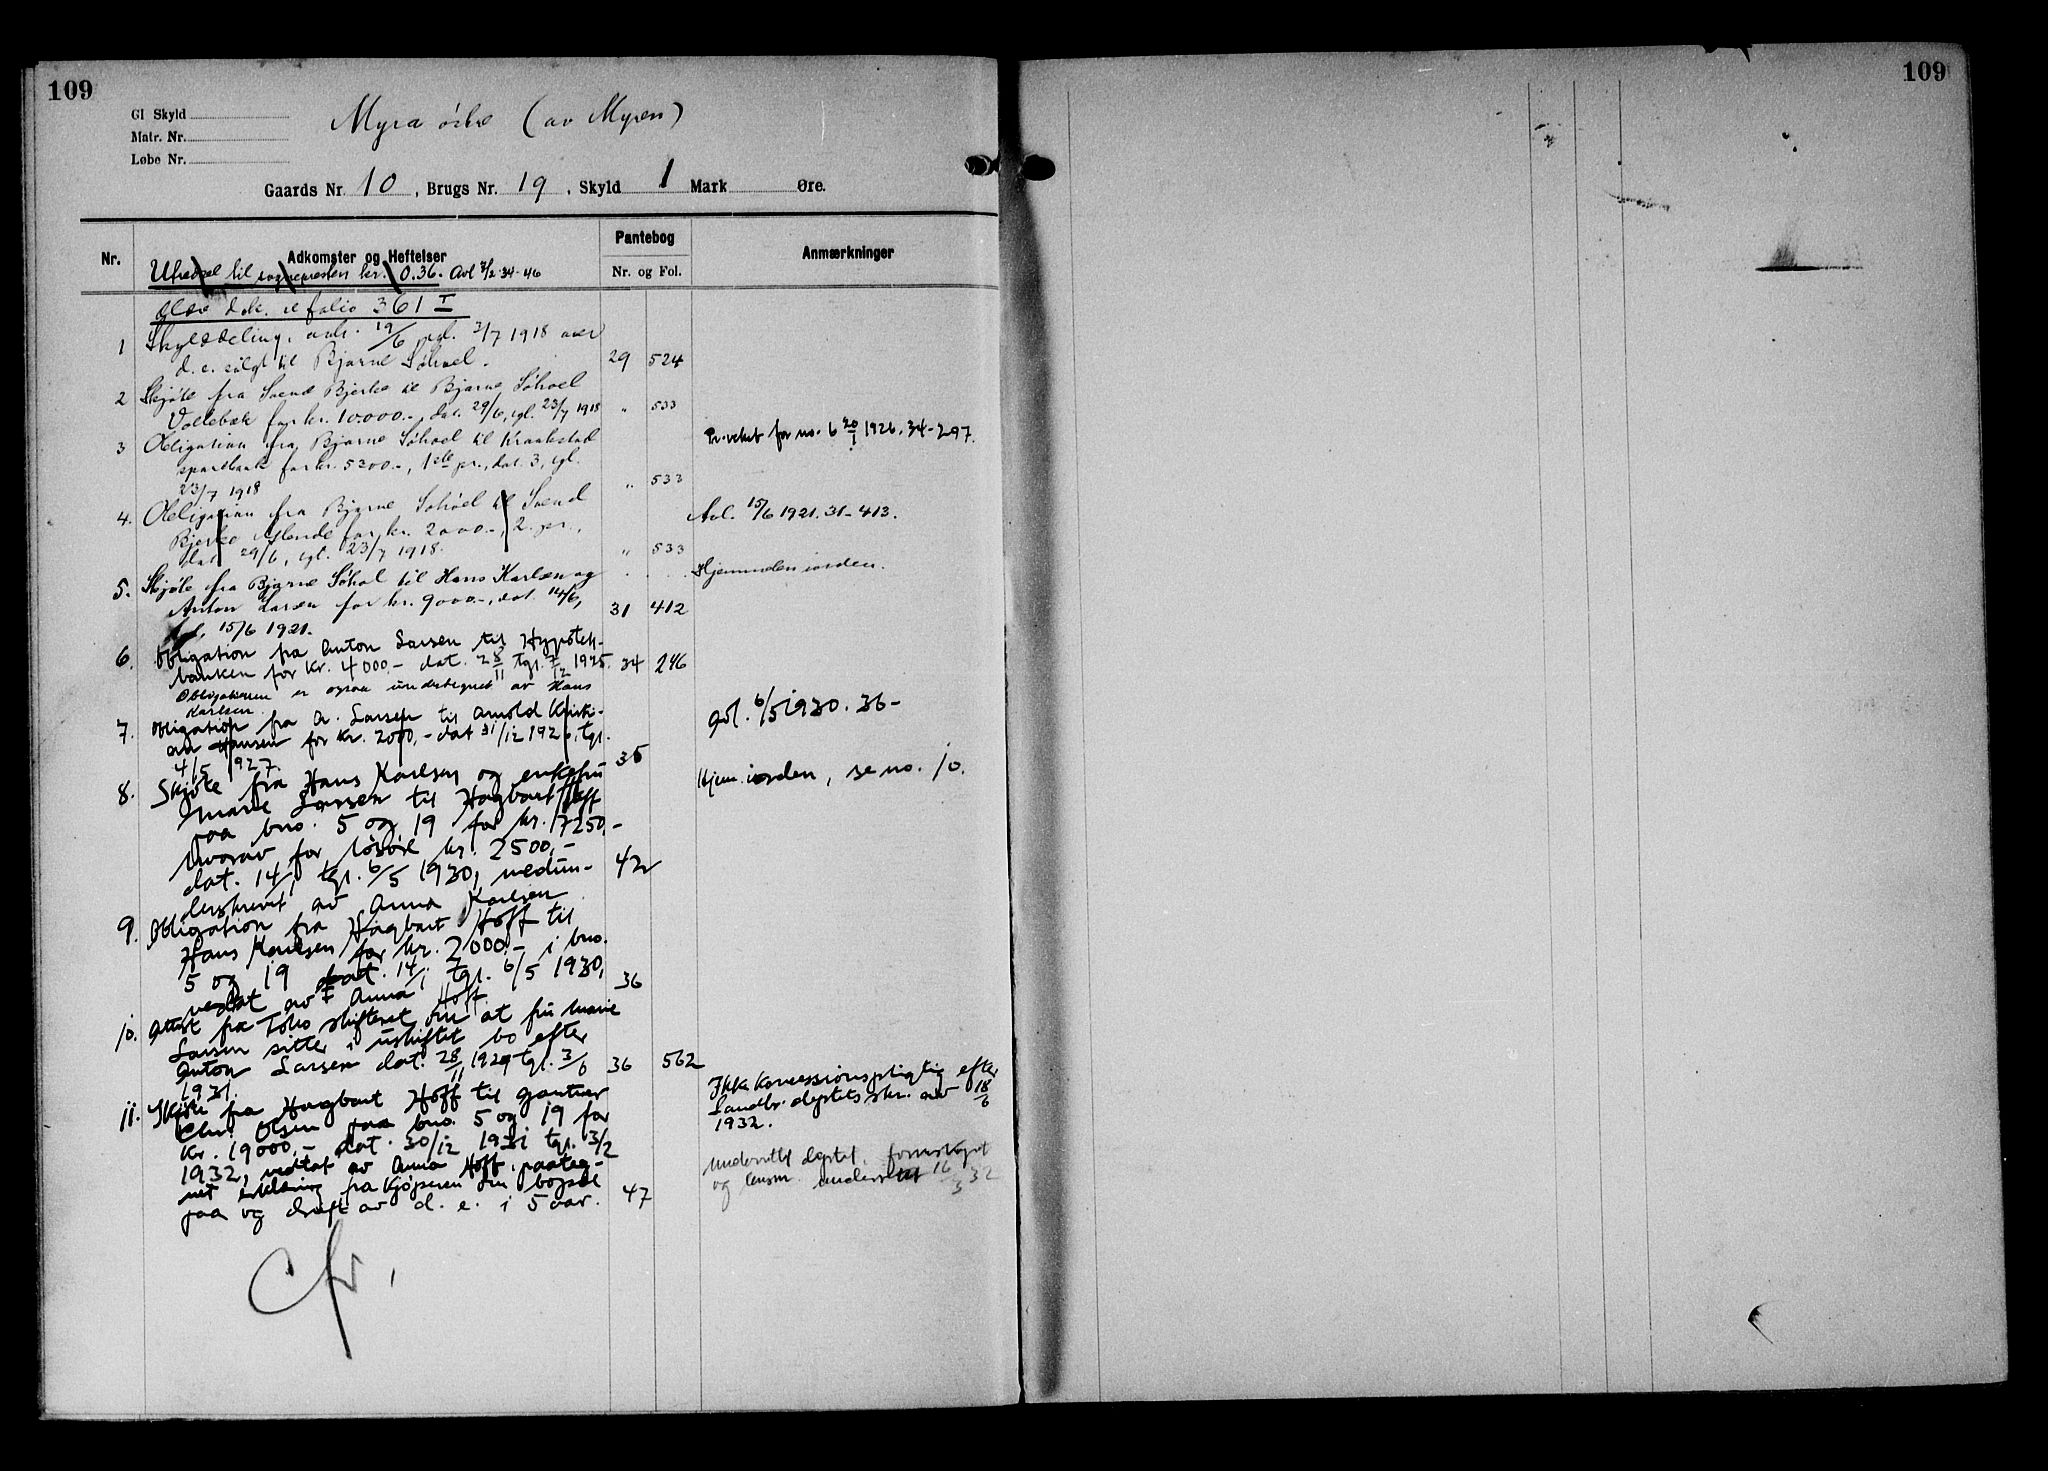 109
109
Gl Skyld
Matr. Nr.
Løbe Nr.
Myra östre (av Myren)
Gaards Nr. 10, Brugs Nr. 19, Skyld 1 Mark Øre.
Nr.
Adkomster og Heftelser
Pantebog
Nr. og Fol.
Anmærkninger
til sognepresten kr. 0.36. Avl 7/2-34-46
Eldre dok. se folio 361 I
1 Skylddeling, avh. 19/6 tgl. 3/7 1918 over
d. e. solgt til Bjarne Söhoel. 29 524
2 Skjöte fra Svend Bjerke til Bjarne Söhoel
Vollebæk for kr. 10.000.-, dat. 29/6, tgl. 23/7 1918 " 533
3 Obligation fra Bjarne Söhoel til Kraakstad
sparebank for kr. 5200.-, 1ste pr., dat. 3, tgl.
23/7 1918 " 533
Pr. veket for no. 6 20/1 1926. 34-297.
4. Obligation fra Bjarne Söhoel til Svend
Bjerke for kr. 2000.-, 2. pr.,
dat 29/6, tgl. 23/7 1918. " 533
Avl. 15/6 1921. 31-413.
5. Skjöte fra Bjarne Söhol til Hans Karlsen og
Anton Larsen for kr. 9000.-, dat. 14/6,
tgl. 15/6 1921. 31 412
Hjemmelen iorden.
6. Obligation fra Anton Larsen til Hypotek-
banken for Kr. 4000.- dat. 28/11 tgl. 7/12 1925. 34 246
Obligationen er ogsaa undertegnet av Hans
Karlsen.
7. Obligation fra A. Larsen til Arnold Kristi-
an Hansen for kr. 2000,- dat 31/12 1926, tgl.
4/5 1927. 35
avl. 6/5 1930. 36-
8. Skjøte fra Hans Karlsen og enkefru
Marie Larsen til Hagbart Hoff
paa bno. 5 og 19 for kr. 17250,-
hvorav for løsøre kr. 2500,-
dat. 14/1 tgl. 6/5 1930, medun-
derskrevet av Anna Karlsen 42
Hjem. iorden, se no. 10.
9. Obligation fra Hagbart Hoff til
Hans Karlsen for kr. 2000.- i bno.
5 og 19 dat. 14/1 tgl. 6/5 1930,
vedtat av Anna Hoff. 36
10. Attest fra Follo skifteret om at fru Marie
Larsen sitter i uskiftet bo efter
Anton Larsen dat. 28/11 1929 tgl. 3/6
1931. 36 562
11. Skjøte fra Hagbart Hoff til gartner
Chr. Olsen paa bno. 5 og 19 for
Kr. 19000,- dat. 30/12 1931 tgl. 3/2
1932, vedtat av Anna Hoff, paateg-
net erklæring fra kjøperen om bopæl
paa og drift av d. e. i 5 aar. 47
Ikke koncessionspligtig efter
Landbr. deptets skr. av 18/6
1932.
Underrettet deptet, formskapet
og lensm. 16/3 32
Cfr.